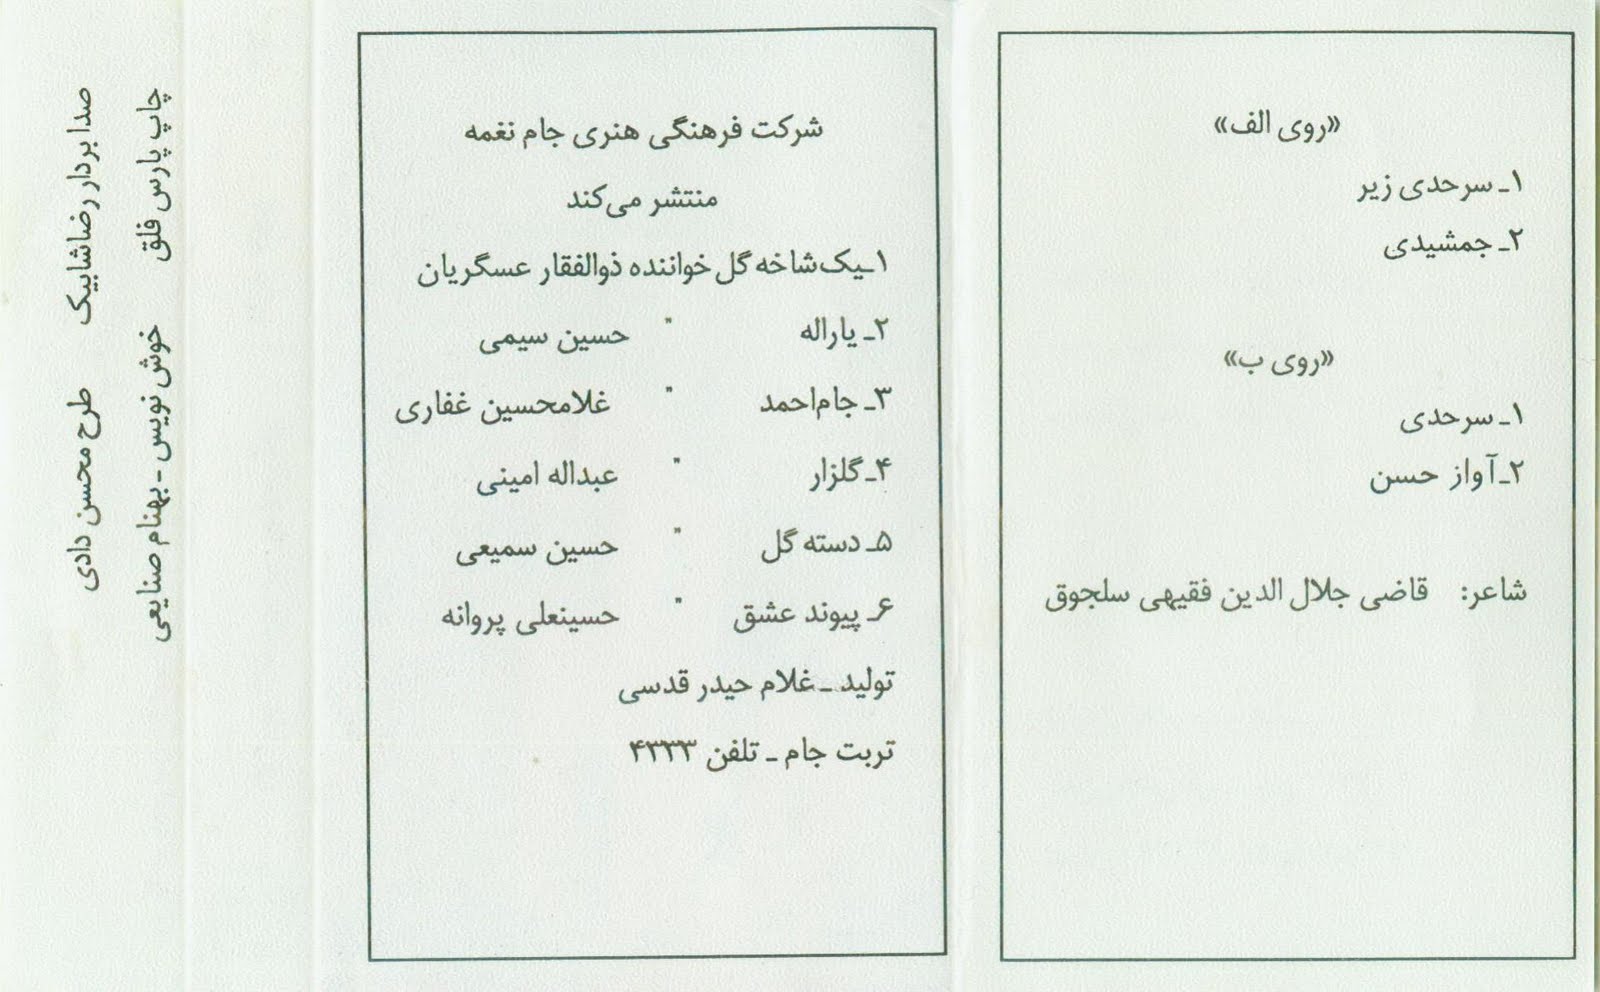 «روی الف»
۱ـ سرحدی زیر
۲ـ جمشیدی
«روی ب»
۱ـ سرحدی
۲ـ آواز حسن
شاعر: قاضی جلال الدین فقیهی سلجوق
شرکت فرهنگی هنری جام نغمه
منتشر می‌کند
۱ـ یک‌شاخه گل خواننده ذوالفقار عسگریان
۲ـ یاراله " حسین سیمی
۳ـ جام‌احمد " غلامحسین غفاری
۴ـ گلزار " عبداله امینی
۵ـ دسته گل " حسین سمیعی
۶ـ پیوند عشق " حسینعلی پروانه
تولید ـ غلام حیدر قدسی
تربت جام ـ تلفن ۴۳۳۳
صدا بردار رضاشابیک طرح محسن دادی
چاپ پارس فلق خوش نویس ـ بهنام صنایعی